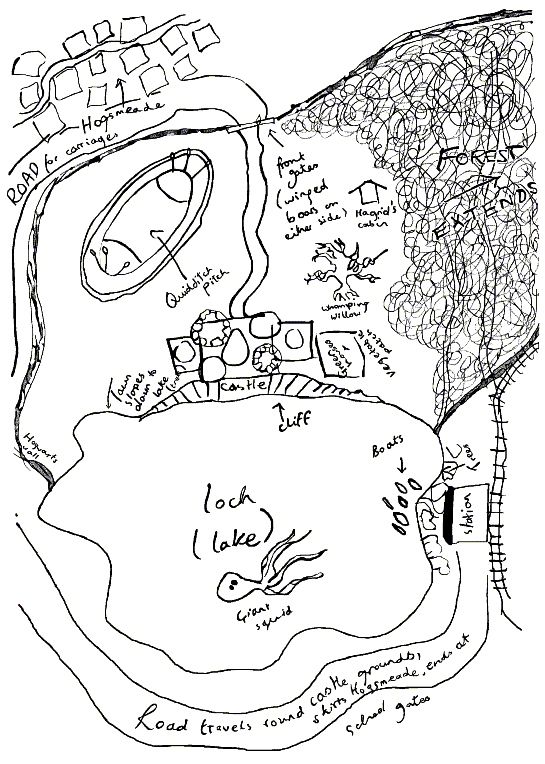 Hogsmeade
ROAD for carriages
front
gates
(winged
boars on
either side)
Hagrid's
cabin
FOREST
EXTENDS
Quidditch
pitch
Whomping
willow
vegetable
patch
castle
lawn
slopes
down to
lake
cliff
Hogwarts
wall
Boats
trees
station
loch
(lake)
Giant
squid
Road travels round castle grounds,
skirts Hogsmeade, ends at
school gates